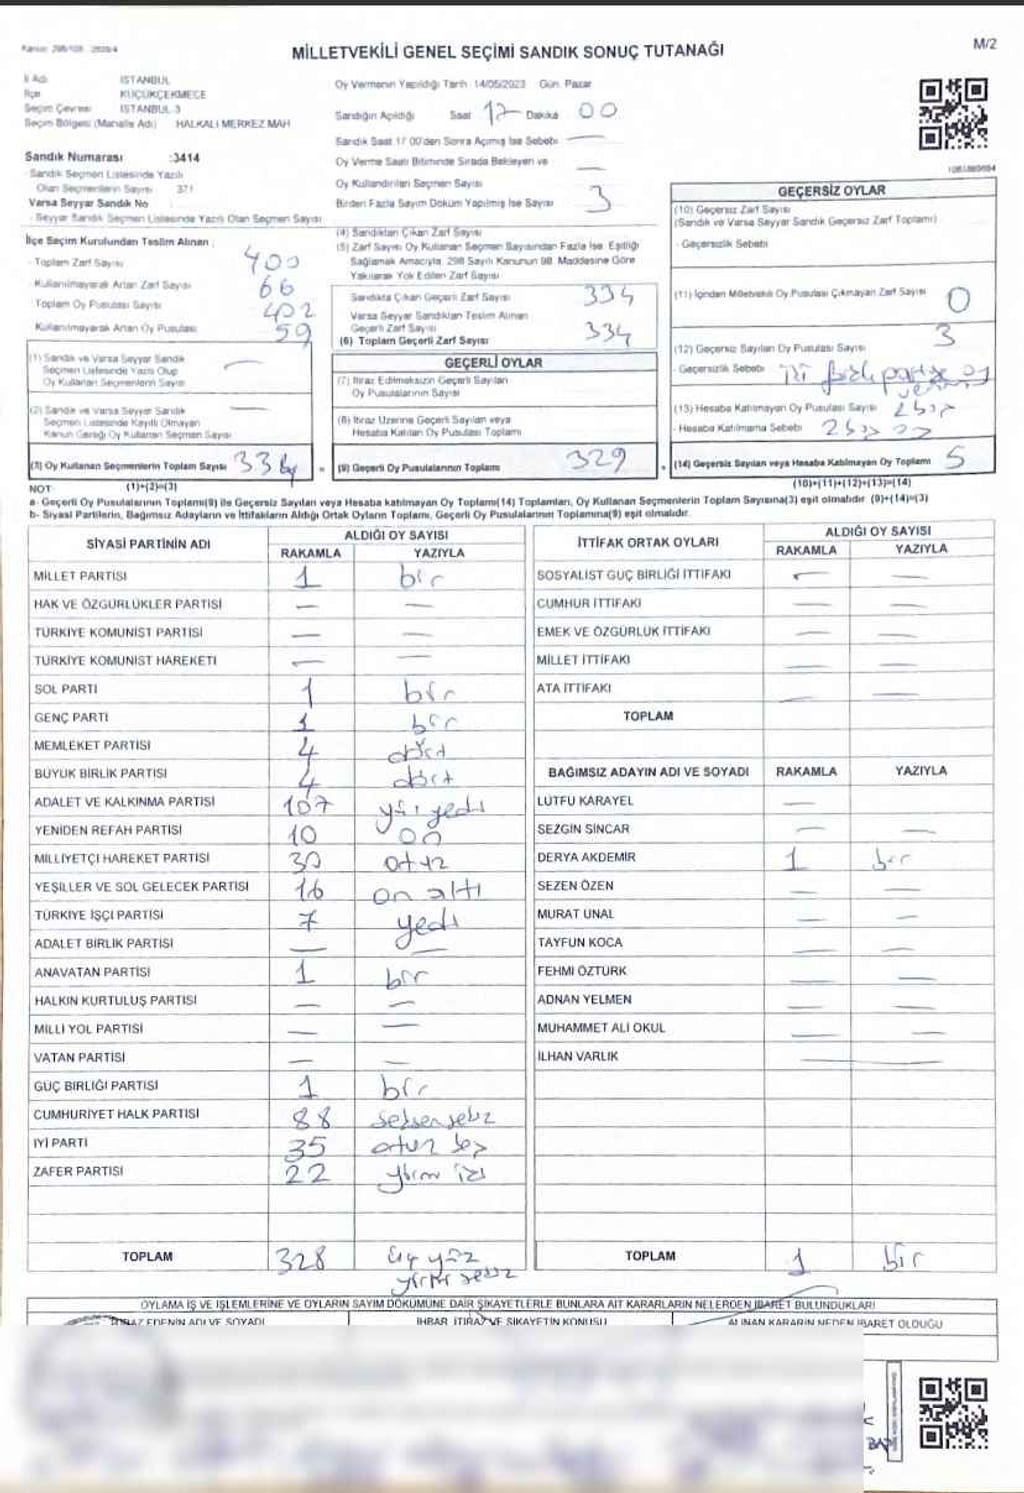 MİLLETVEKİLİ GENEL SEÇİMİ SANDIK SONUÇ TUTANAĞI
M/2
İl Adı İSTANBUL
İlçe KÜÇÜKÇEKMECE
Seçim Çevresi İSTANBUL 3
Seçim Bölgesi (Mahalle Adı) HALKALI MERKEZ MAH
Sandık Numarası :3414
- Sandık Seçmen Listesinde Yazılı
Olan Seçmenlerin Sayısı 371
Varsa Seyyar Sandık No
- Seyyar Sandık Seçmen Listesinde Yazılı Olan Seçmen Sayısı
İlçe Seçim Kurulundan Teslim Alınan :
- Toplam Zarf Sayısı 400
- Kullanılmayarak Artan Zarf Sayısı 66
Toplam Oy Pusulası Sayısı 402
Kullanılmayarak Artan Oy Pusulası 59
(1) Sandık ve Varsa Seyyar Sandık
Seçmen Listesinde Yazılı Olup
Oy Kullanan Seçmenlerin Sayısı —
(2) Sandık ve Varsa Seyyar Sandık
Seçmen Listesinde Kayıtlı Olmayan
Kanun Gereği Oy Kullanan Seçmen Sayısı —
(3) Oy Kullanan Seçmenlerin Toplam Sayısı 334
Oy Vermenin Yapıldığı Tarih :14/05/2023 Gün: Pazar
Sandığın Açıldığı Saat 17 Dakika 00
Sandık Saat 17:00'den Sonra Açılmış İse Sebebi —
Oy Verme Saati Bitiminde Sırada Bekleyen ve
Oy Kullandırılan Seçmen Sayısı —
Birden Fazla Sayım Döküm Yapılmış İse Sayısı 3
(4) Sandıktan Çıkan Zarf Sayısı
(5) Zarf Sayısı Oy Kullanan Seçmen Sayısından Fazla İse, Eşitliği
Sağlamak Amacıyla, 298 Sayılı Kanunun 98. Maddesine Göre
Yakılarak Yok Edilen Zarf Sayısı
Sandıkta Çıkan Geçerli Zarf Sayısı 334
Varsa Seyyar Sandıktan Teslim Alınan
Geçerli Zarf Sayısı
(6) Toplam Geçerli Zarf Sayısı 334
GEÇERLİ OYLAR
(7) İtiraz Edilmeksizin Geçerli Sayılan
Oy Pusulalarının Sayısı
(8) İtiraz Üzerine Geçerli Sayılan veya
Hesaba Katılan Oy Pusulası Toplamı
(9) Geçerli Oy Pusulalarının Toplamı 329
GEÇERSİZ OYLAR
(10) Geçersiz Zarf Sayısı
(Sandık ve Varsa Seyyar Sandık Geçersiz Zarf Toplamı)
- Geçersizlik Sebebi
(11) İçinden Milletvekili Oy Pusulası Çıkmayan Zarf Sayısı 0
(12) Geçersiz Sayılan Oy Pusulası Sayısı 3
- Geçersizlik Sebebi
(13) Hesaba Katılmayan Oy Pusulası Sayısı
- Hesaba Katılmama Sebebi
(14) Geçersiz Sayılan veya Hesaba Katılmayan Oy Toplamı 5
NOT: (1)+(2)=(3) (10)+(11)+(12)+(13)=(14)
a- Geçerli Oy Pusulalarının Toplamı(9) ile Geçersiz Sayılan veya Hesaba katılmayan Oy Toplamı(14) Toplamları, Oy Kullanan Seçmenlerin Toplam Sayısına(3) eşit olmalıdır. (9)+(14)=(3)
b- Siyasi Partilerin, Bağımsız Adayların ve İttifakların Aldığı Ortak Oyların Toplamı, Geçerli Oy Pusulalarının Toplamına(9) eşit olmalıdır.
SİYASİ PARTİNİN ADI ALDIĞI OY SAYISI
RAKAMLA YAZIYLA
MİLLET PARTİSİ 1 bir
HAK VE ÖZGÜRLÜKLER PARTİSİ — —
TÜRKİYE KOMÜNİST PARTİSİ — —
TÜRKİYE KOMÜNİST HAREKETİ — —
SOL PARTİ 1 bir
GENÇ PARTİ 1 bir
MEMLEKET PARTİSİ 4 dört
BÜYÜK BİRLİK PARTİSİ 4 dört
ADALET VE KALKINMA PARTİSİ 107 yüz yedi
YENİDEN REFAH PARTİSİ 10 on
MİLLİYETÇİ HAREKET PARTİSİ 30 otuz
YEŞİLLER VE SOL GELECEK PARTİSİ 16 on altı
TÜRKİYE İŞÇİ PARTİSİ 7 yedi
ADALET BİRLİK PARTİSİ — —
ANAVATAN PARTİSİ 1 bir
HALKIN KURTULUŞ PARTİSİ — —
MİLLİ YOL PARTİSİ — —
VATAN PARTİSİ — —
GÜÇ BİRLİĞİ PARTİSİ 1 bir
CUMHURİYET HALK PARTİSİ 88 seksen sekiz
İYİ PARTİ 35 otuz beş
ZAFER PARTİSİ 22 yirmi iki
TOPLAM 328 üç yüz
yirmi sekiz
İTTİFAK ORTAK OYLARI ALDIĞI OY SAYISI
RAKAMLA YAZIYLA
SOSYALİST GÜÇ BİRLİĞİ İTTİFAKI — —
CUMHUR İTTİFAKI — —
EMEK VE ÖZGÜRLÜK İTTİFAKI — —
MİLLET İTTİFAKI — —
ATA İTTİFAKI — —
TOPLAM
BAĞIMSIZ ADAYIN ADI VE SOYADI RAKAMLA YAZIYLA
LÜTFÜ KARAYEL —
SEZGİN SİNCAR — —
DERYA AKDEMİR 1 bir
SEZEN ÖZEN — —
MURAT ÜNAL — —
TAYFUN KOCA — —
FEHMİ ÖZTÜRK — —
ADNAN YELMEN — —
MUHAMMET ALİ OKUL — —
İLHAN VARLIK — —
TOPLAM 1 bir
OYLAMA İŞ VE İŞLEMLERİNE VE OYLARIN SAYIM DÖKÜMÜNE DAİR ŞİKAYETLERLE BUNLARA AİT KARARLARIN NELERDEN İBARET BULUNDUKLARI
İTİRAZ EDENİN ADI VE SOYADI İHBAR İTİRAZ VE ŞİKAYETİN KONUSU ALINAN KARARIN NEDEN İBARET OLDUĞU